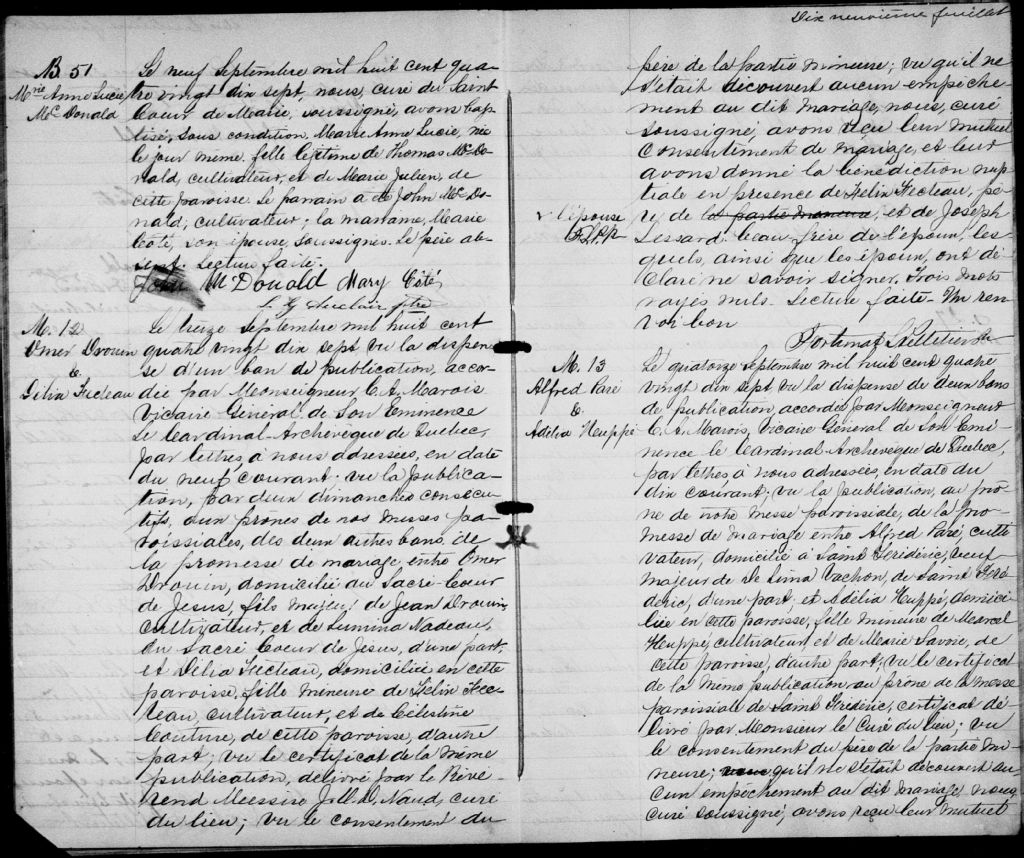 B. 51
Mrie Anne Lucie
McDonald
Le neuf Septembre mil huit cent qua-
tre vingt dix sept, nous, curé du Saint
Coeur de Marie, soussigné, avons bap-
tisé, sous condition, Marie Anne Lucie, née
le jour même, fille légitime de Thomas McDo-
nald, cultivateur, et de Marie Julien, de
cette paroisse. Le parrain a été John McDo-
nald, cultivateur; la marraine, Marie
Coté, son épouse, soussignés. Le père ab-
sent. Lecture faite.
John McDonald Mary Coté
M. 12
Omer Drouin
&
Délia Fecteau
Le treize Septembre mil huit cent
quatre vingt dix sept vu la dispen-
se d'un ban de publication, accor-
dée par Monseigneur C. A. Marois
Vicaire Général de Son Eminence
Le Cardinal-Archevêque de Québec,
par lettres à nous adressées, en date
du neuf courant; vu la publica-
tion, par deux dimanches consécu-
tifs, aux prônes de nos messes pa-
roissiales, des deux autres bans de
la promesse de mariage, entre Omer
Drouin, domicilié au Sacré-Coeur
de Jésus, fils majeur de Jean Drouin,
cultivateur, et de Lumina Nadeau,
du Sacré Coeur de Jésus, d'une part;
et Délia Fecteau, domiciliée en cette
paroisse, fille mineure de Félix Fec-
teau, cultivateur, et de Célestine
Couture, de cette paroisse, d'autre
part; vu le certificat de la même
publication, délivré par le Révé-
rend Messire Naud, curé
du lieu; vu le consentement du
Dix neuvième feuillet
père de la partie mineure; vu qu'il ne
s'était découvert aucun empêche-
ment au dit mariage, nous, curé
soussigné avons reçu leur mutuel
Consentiment de mariage, et leur
avons donné la bénédiction nup-
tiale en présence de Félix Fecteau, pè-
re, de la partie mineure, et de Joseph
Lessard beau frère de l'époux, les-
quels, ainsi que les époux, ont dé-
claré ne savoir signer. Trois mots
rayés nuls. Lecture faite. Un ren-
voi bon
l'épouse
Fortunat Pelletier Ptre
M. 13
Alfred Paré
&
Adélia Huppé
Le quatorze Septembre mil huit cent quatre
vingt dix sept vu la dispense de deux bans
de publication, accordée par Monseigneur
C. A. Marois, Vicaire Général de Son Emi-
nence le Cardinal Archevêque de Québec,
par lettres, à nous adressées, en date du
dix courant; vu la publication, au prô-
ne de notre messe paroissiale, de la pro-
messe de mariage entre Alfred Paré, culti-
vateur, domicilié à Saint Fréderic, veuf
majeur de De lima Vachon, de Saint Fré-
déric, d'une part; et Adélia Huppé, domici-
liée en cette paroisse, fille mineure de Marcel
Huppé, cultivateur, et de Marie Savoie, de
cette paroisse, d'autre part; vu le certificat
de la même publication au prône de la messe
paroissiale de Saint Fréderic, certificat dé-
livré par Monsieur le Curé du lieu; vu
le consentement du père de la partie mi-
neure; qu'il ne s'était découvert au-
cun empêchement au dit mariage nous,
curé soussigné, avons reçu leur mutuel